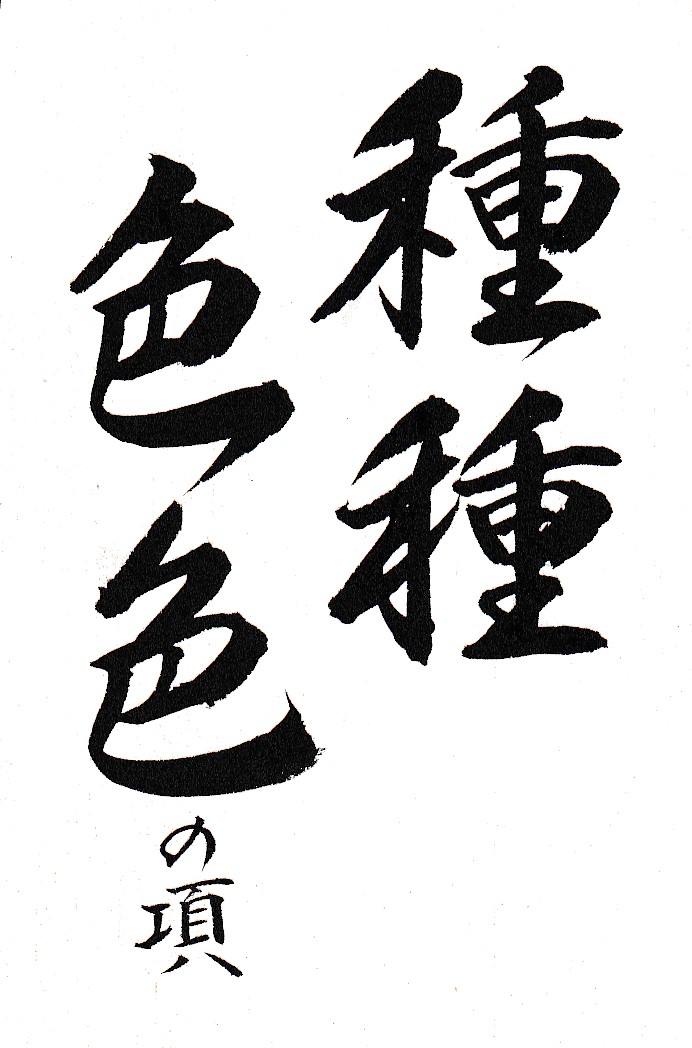 種種
色色の項